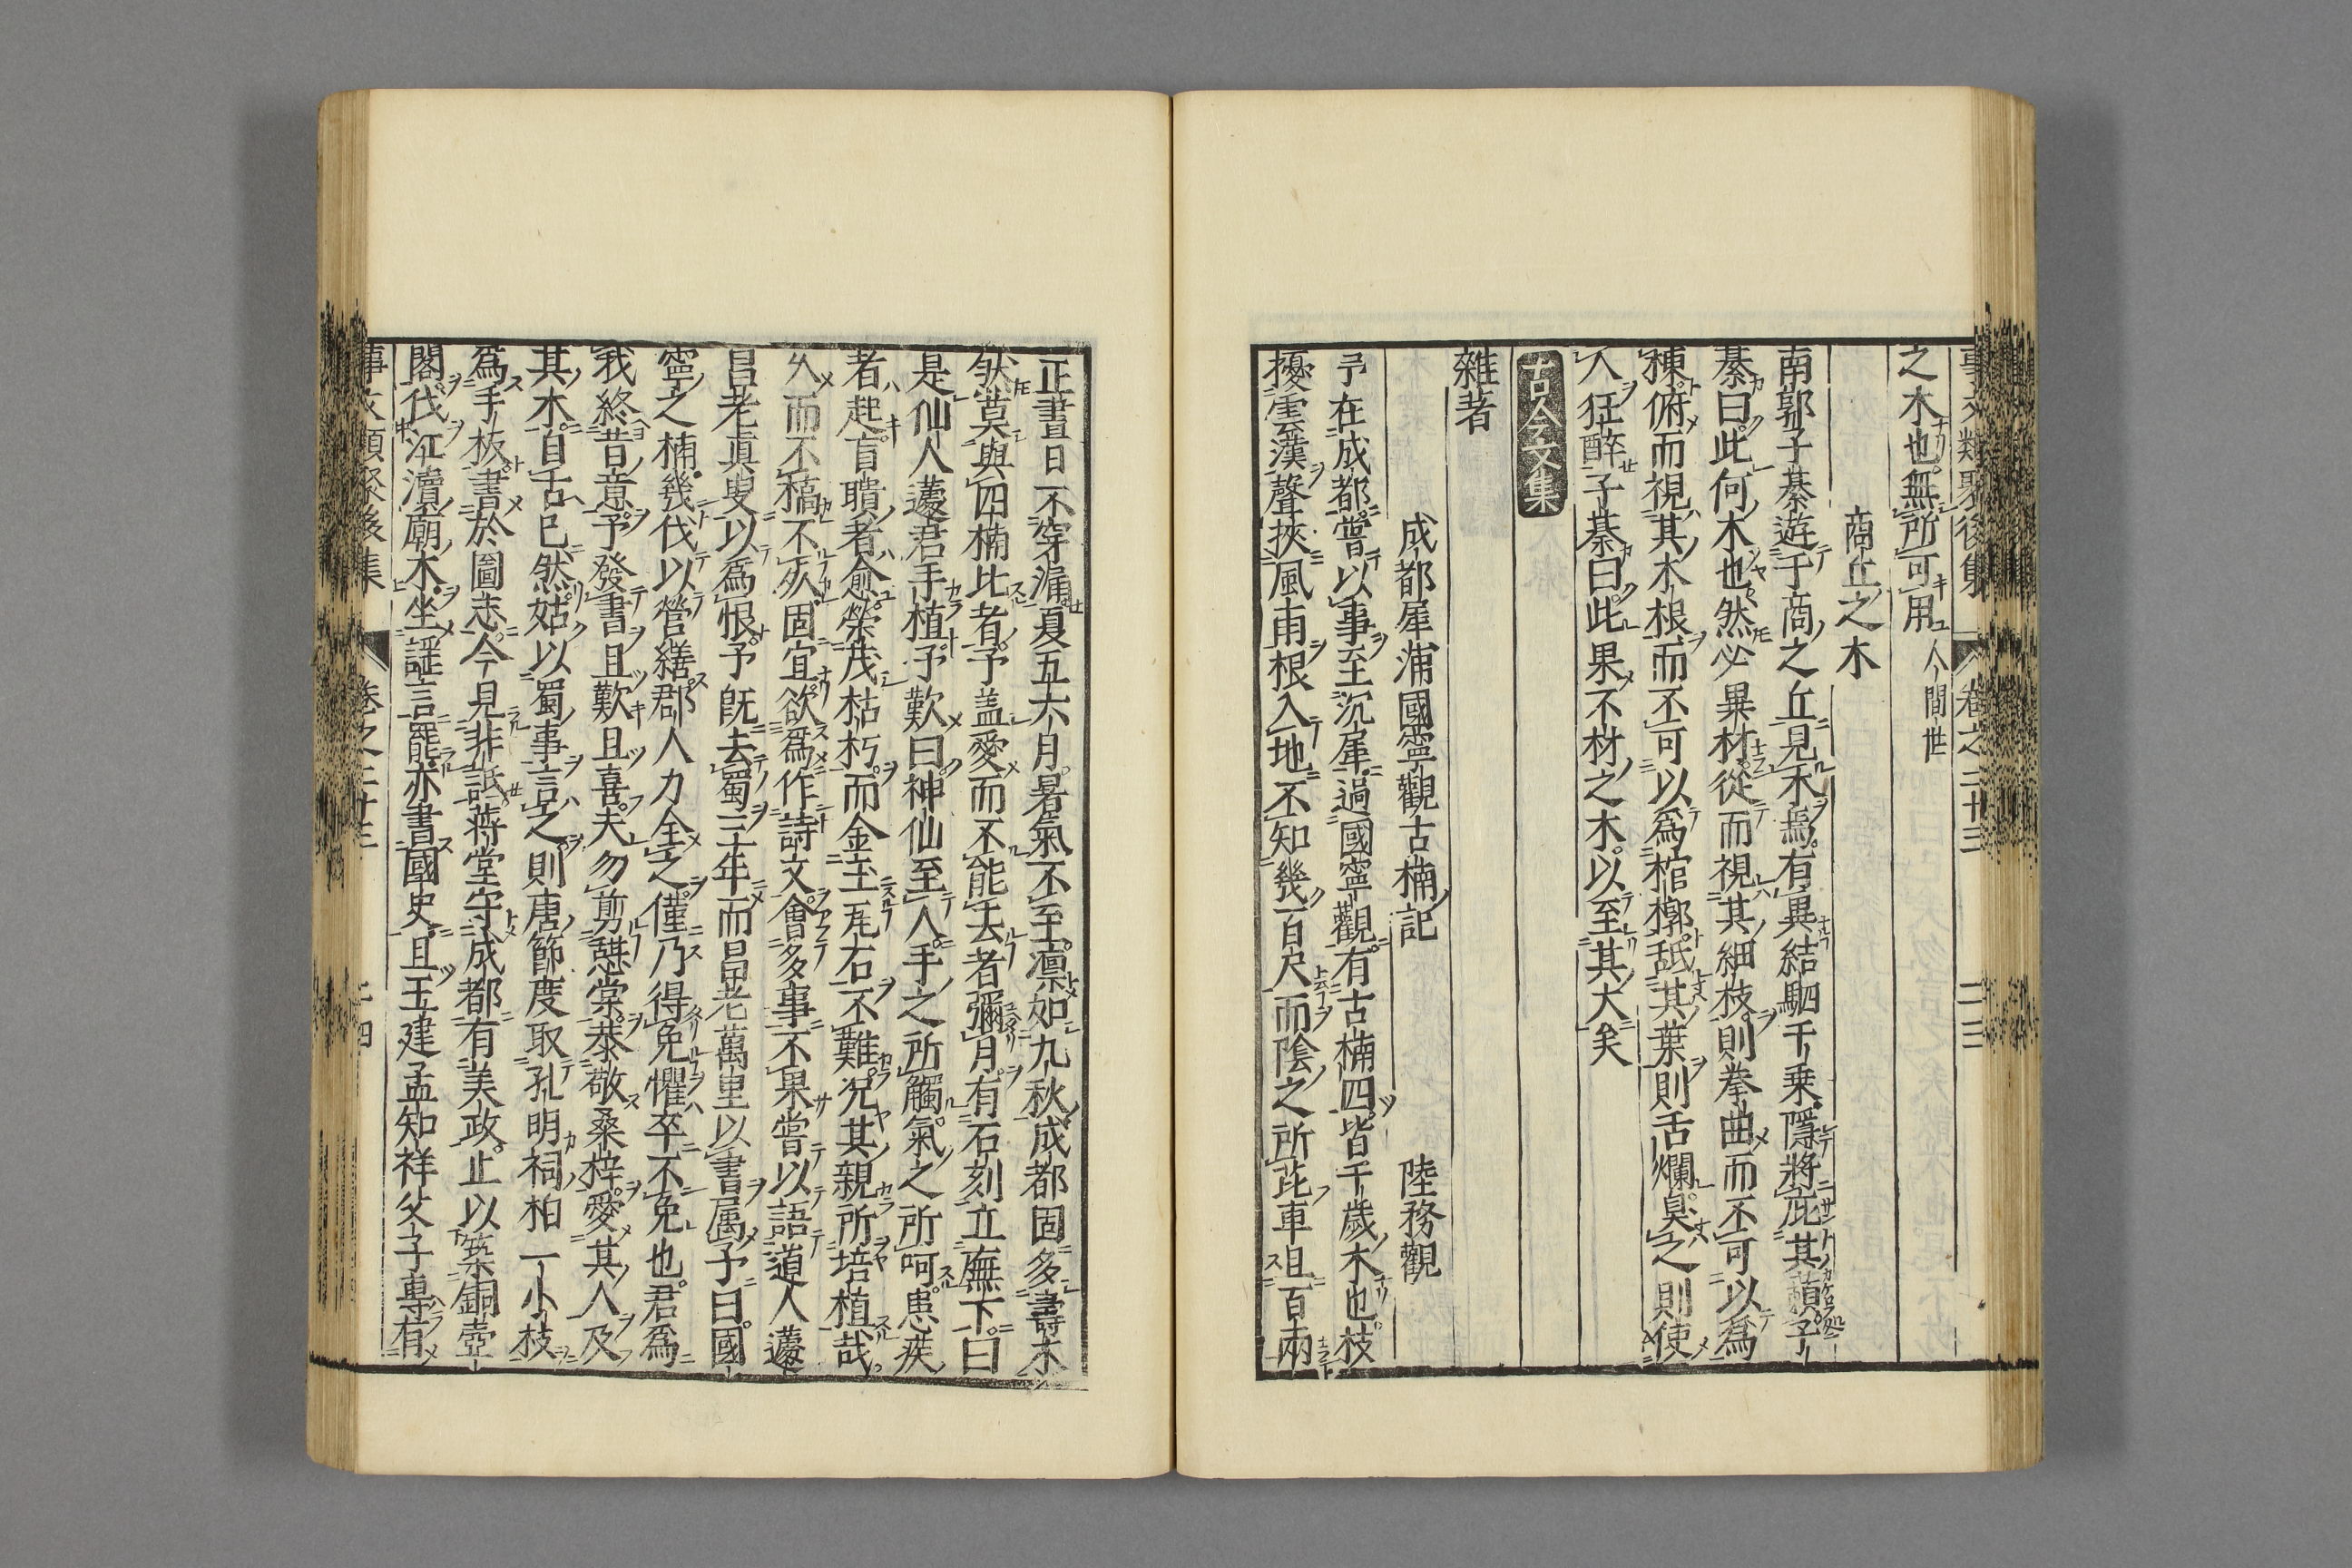 事文類聚後集 卷之二十三 二三
之木也無所可用 人間世
商丘之木
南郭子綦遊于商之丘見木焉有異結駟千乗隱將庇其藾子
綦曰此何木也然必異材從而視其細枝則拳曲而不可以爲
棟俯而視其木根而不可以爲棺槨舐其葉則舌爛臭之則使
人狂酲子綦曰此果不材之木以至其大矣
古今文集
雜著
成都犀浦國寧觀古楠記 陸務觀
予在成都嘗以事至沉犀過國寧觀有古楠四皆千歲木也枝
擾雲漢聲挾風雨根入地不知幾百尺而陰之所芘車且百兩
正晝日不穿漏夏五六月暑氣不至凛如九秋成都固多壽木
然莫與四楠比者予盖愛而不能去者彌月有石刻立廡下曰
是仙人蘧君手植予歎曰神仙至人手之所觸氣之所呵患疾
者起盲聵者愈榮茂枯朽而金玉瓦石不難况其親所培植哉
久而不槁不仆固宜欲爲作詩文會多事不果嘗以語道人蘧
昌老真叟以爲恨予旣去蜀三年而昌老萬里以書属予曰國
寧之楠幾伐以營繕郡人力全之僅乃得免懼卒不免也君爲
我終昔意予發書且歎且喜夫勿剪憩棠恭敬桑梓愛其人及
其木自古已然姑以蜀事言之則唐節度取孔明祠柏一小枝
爲手板書於圖志今見非詆蒋堂守成都有美政止以築銅壺
閣伐江瀆廟木坐謡言罷亦書國史且王建孟知祥父子專有
事文類聚後集 卷之二十三 二四